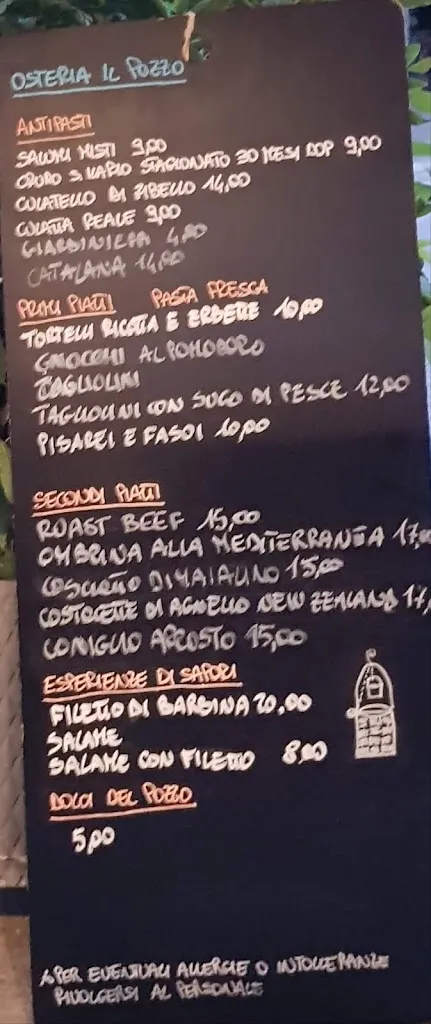 OSTERIA IL POZZO
ANTIPASTI
SALUMI MISTI 9,00
CRUDO S. ILARIO STAGIONATO 30 MESI DOP 9,00
CULATELLO DI ZIBELLO 14,00
CULATTA REALE 9,00
GIARDINIERA 4,00
CATALANA 14,00
PRIMI PIATTI PASTA FRESCA
TORTELLI RICOTTA E ERBETTE 10,00
GNOCCHI AL POMODORO
TAGLIOLINI
TAGLIOLINI CON SUGO DI PESCE 12,00
PISAREI E FASOI 10,00
SECONDI PIATTI
ROAST BEEF 15,00
OMBRINA ALLA MEDITERRANEA 17,00
COSCIOTTO DI MAIALINO 15,00
COSTOLETTE DI AGNELLO NEW ZEALAND 17,
CONIGLIO ARROSTO 15,00
ESPERIENZE DI SAPORI
FILETTO DI BARBINA 20,00
SALAME
SALAME CON FILETTO 8,00
DOLCI DEL POZZO
5,00
PER EVENTUALI ALLERGIE O INTOLLERANZE
RIVOLGERSI AL PERSONALE